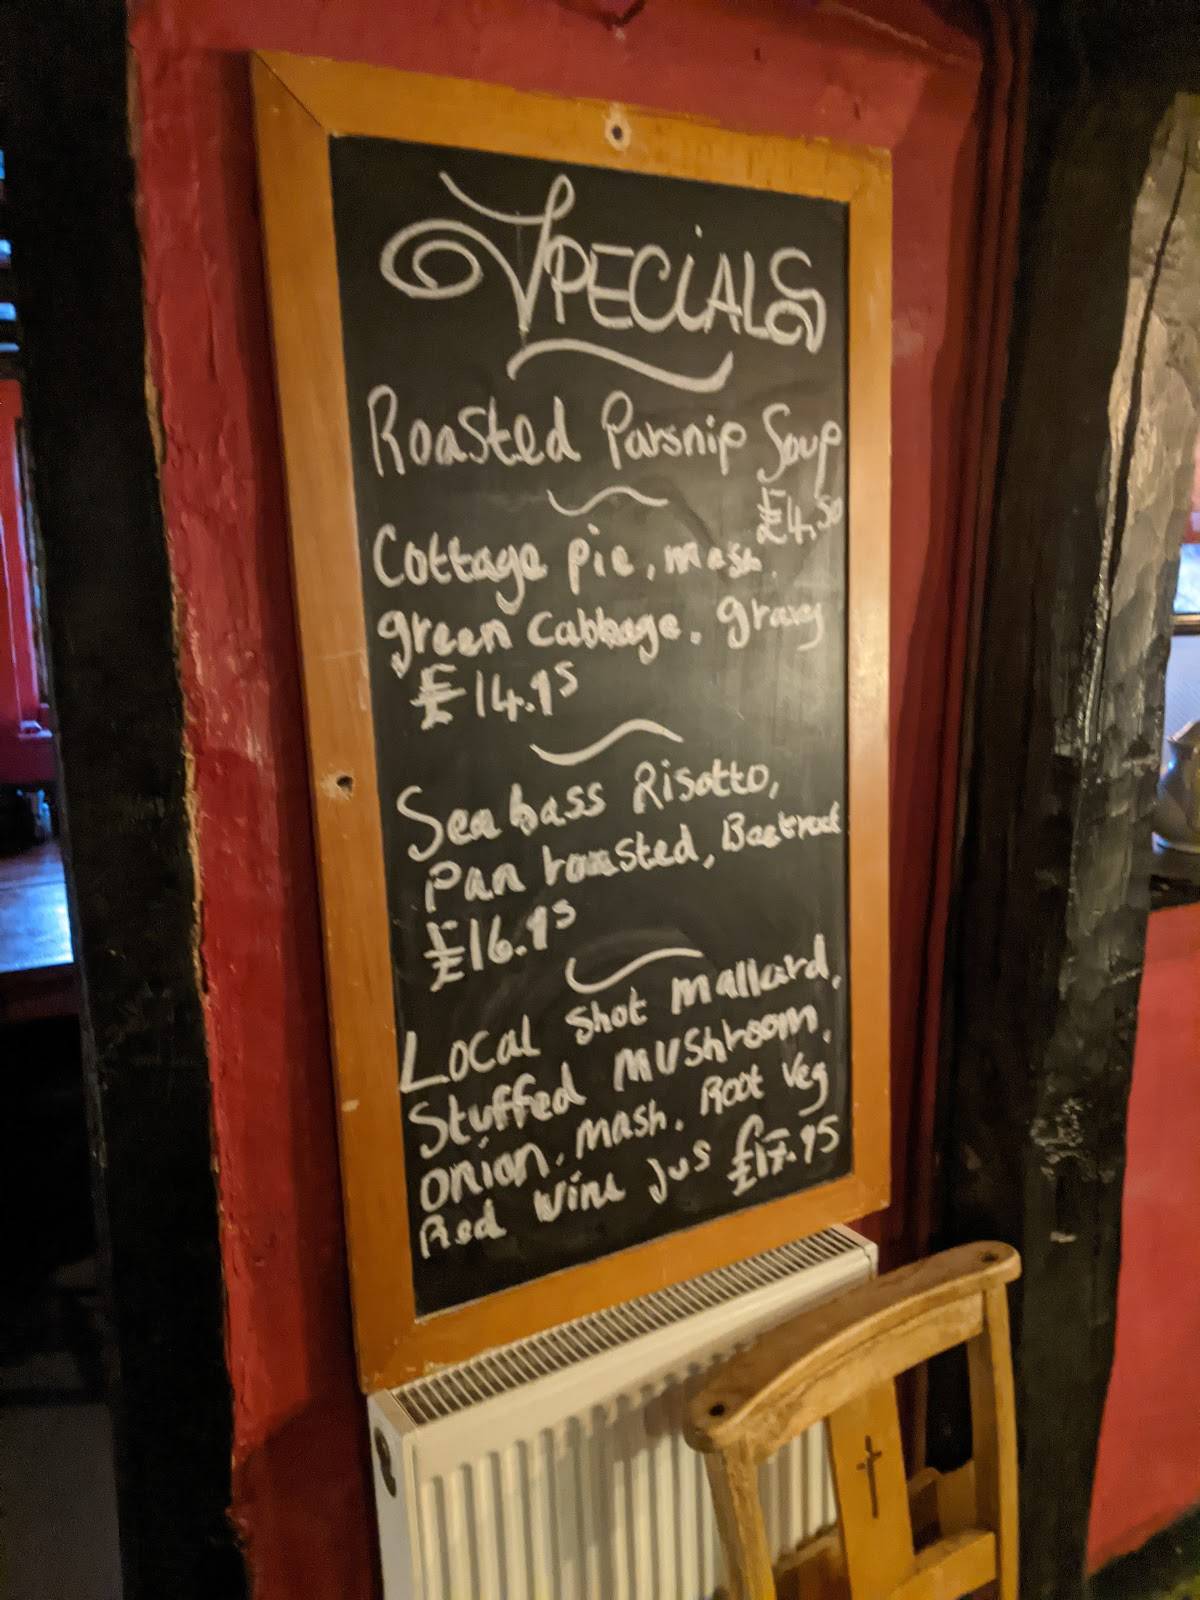 SPECIALS
Roasted Parsnip Soup
£4.50
Cottage pie, mash.
green cabbage. gravy
£14.95
Seabass Risotto,
Pan roasted, Beetroot
£16.95
Local Shot Mallard,
Stuffed Mushroom,
onion, mash. Root Veg
Red Wine Jus £17.95